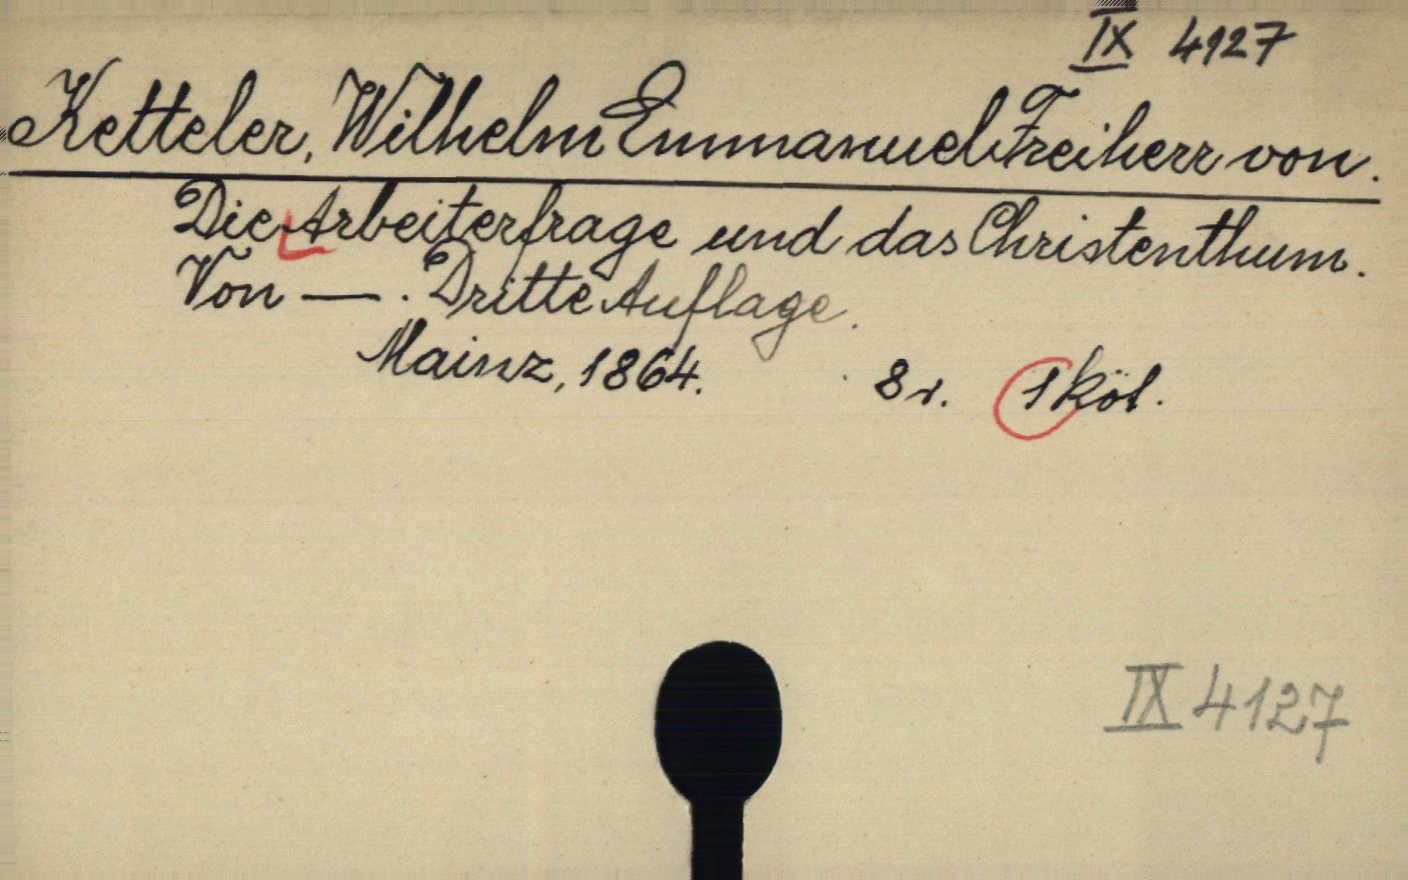 IX 4127
Ketteler, Wilhelm Emmanuel Freiherr von.
Die Arbeiterfrage und das Christenthum.
Von — . Dritte Auflage.
Mainz, 1864. 8r. 1 köt.
IX 4127